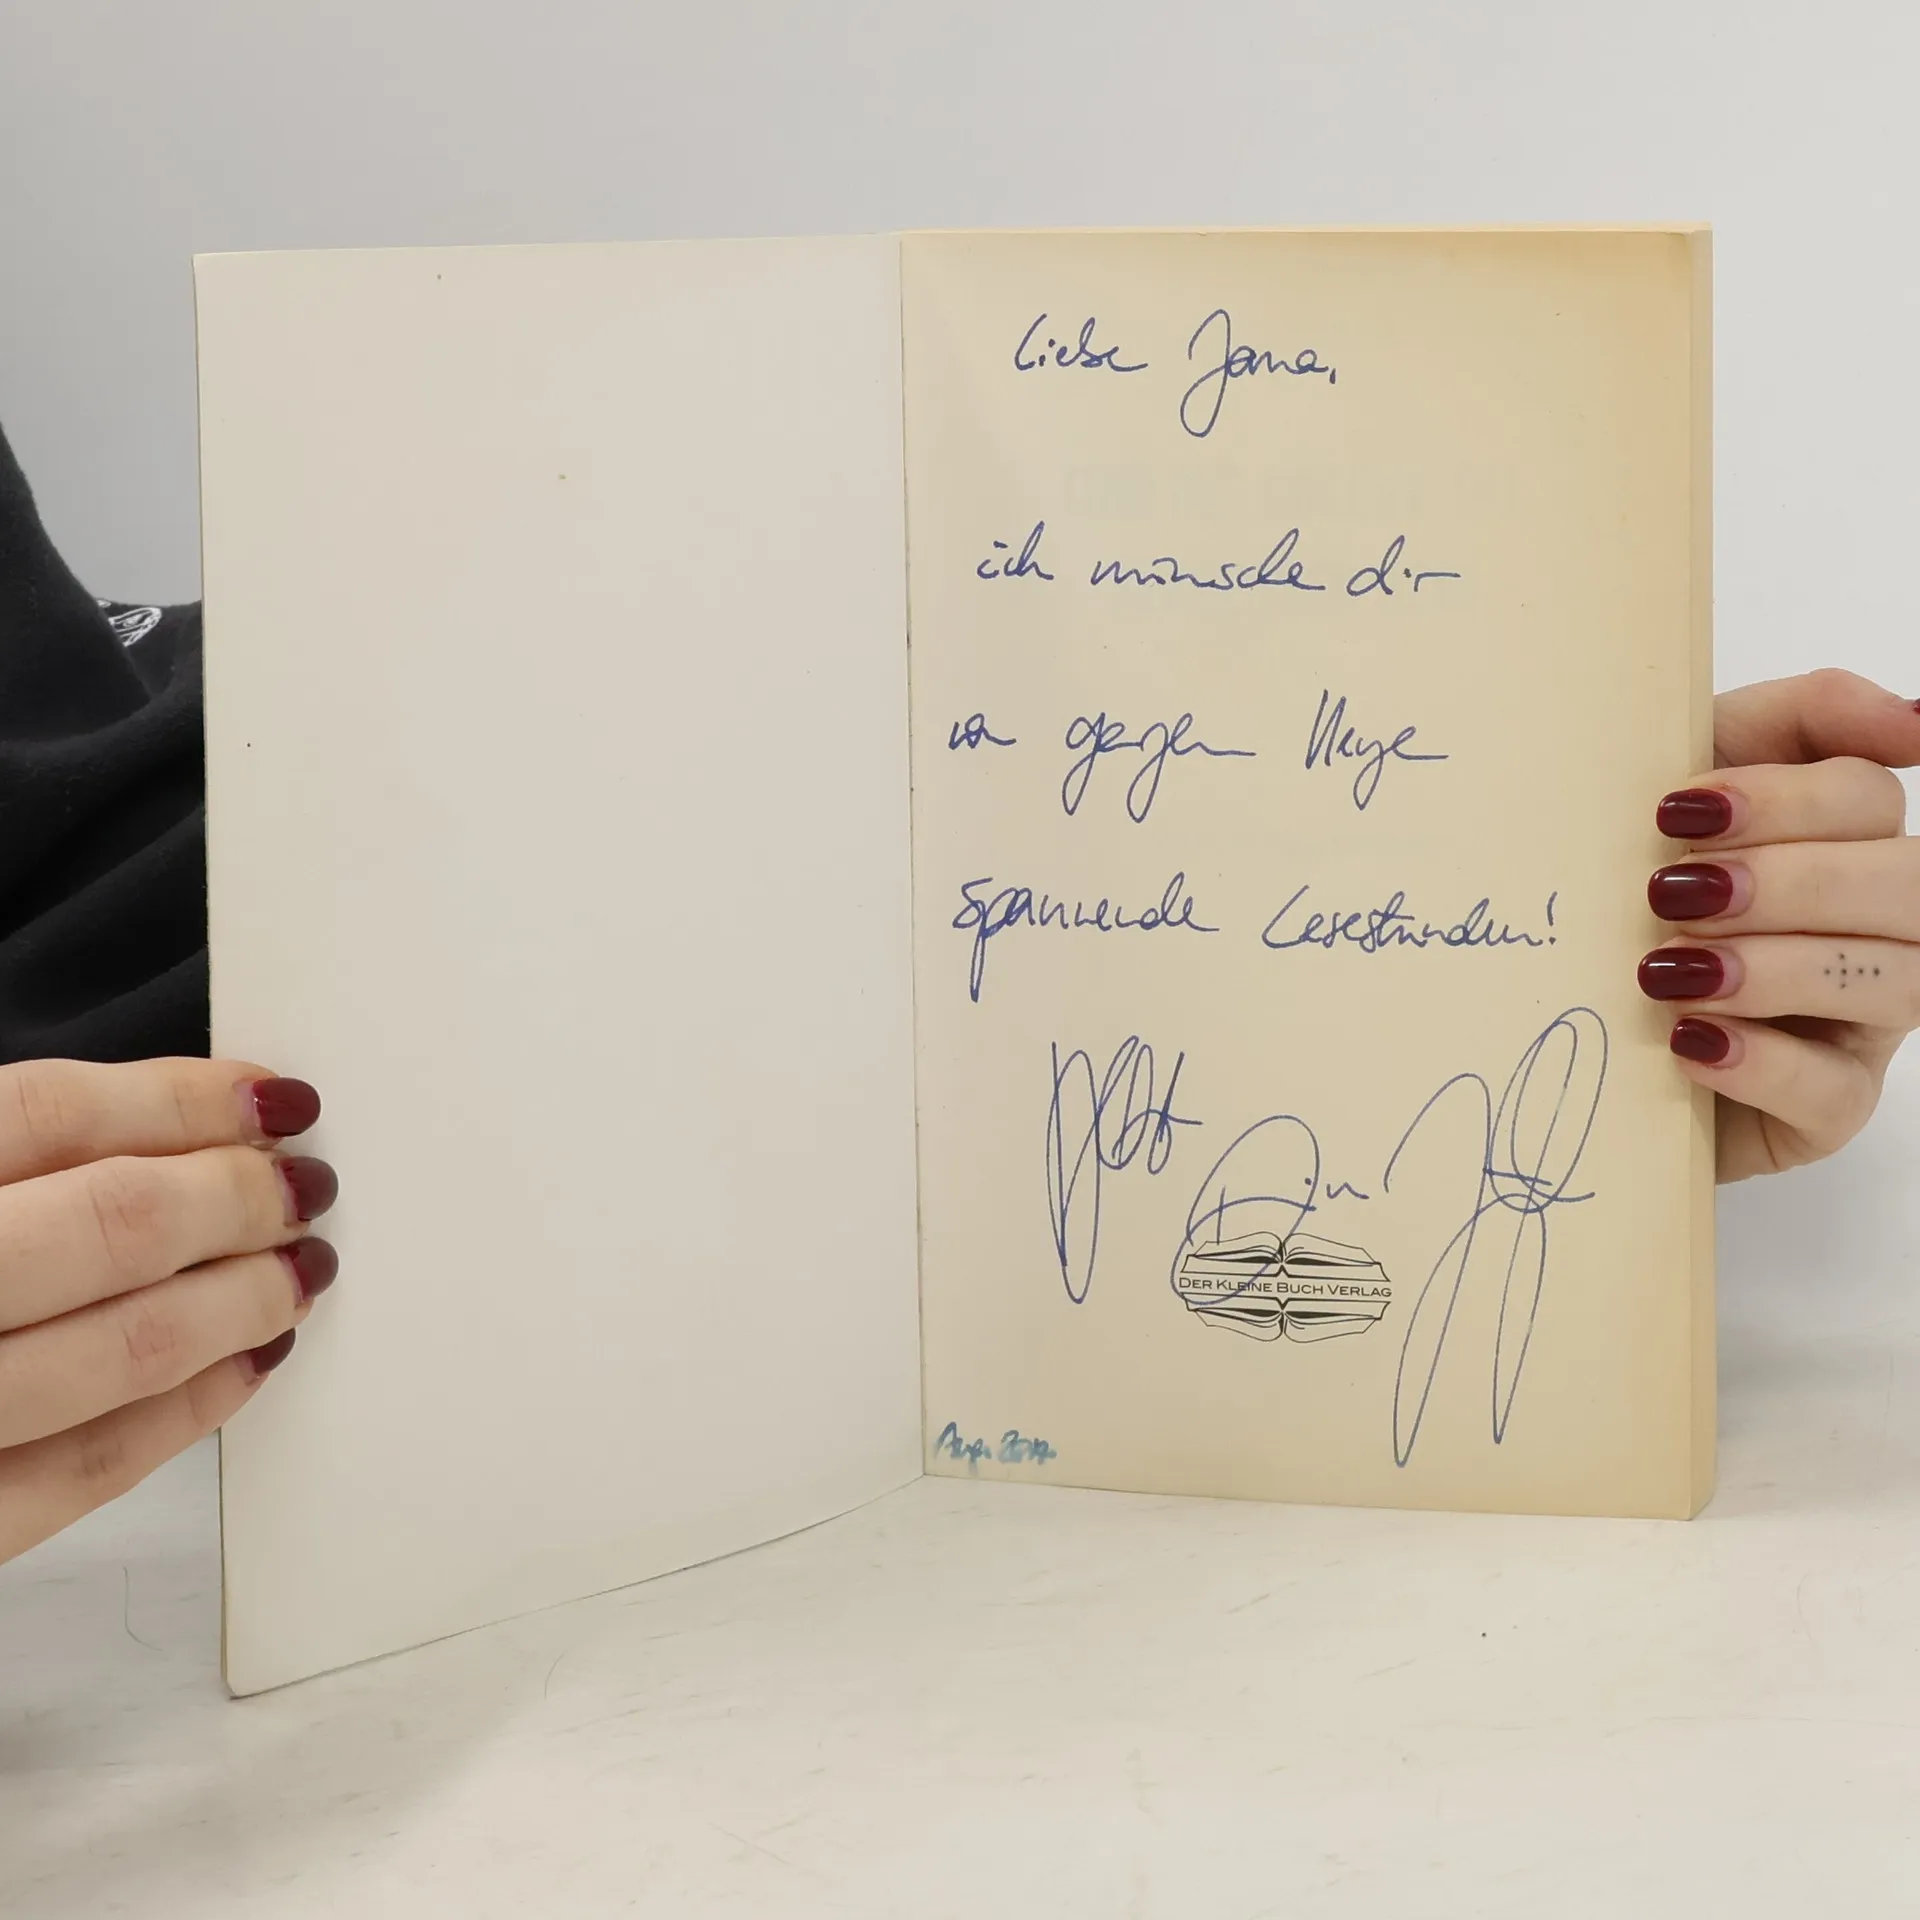 Liebe Jana,
ich wünsche dir
von ganzem Herzen
spannende Lesestunden!
DER KLEINE BUCH VERLAG